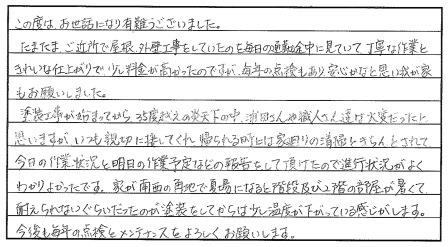 この度は、お世話になり有難うございました。
たまたま、ご近所で屋根、外壁工事をしていたのを毎日の通勤途中に見ていて丁寧な作業と
きれいな仕上がりで少し料金が高かったのですが、毎年の点検もあり安心かなと思い我が家
もお願いしました。
塗装工事が始まってから35度越えの炎天下の中、津田さんや職人さん達は大変だったと
思いますが、いつも親切に接してくれ帰られる時には家廻りの清掃をきちんとされて
今日の作業状況と明日の作業予定などの報告をして頂けたので進行状況がよく
わかりよかったです。家が南西の角地で夏場になると階段及び2階の部屋が暑くて
耐えられないぐらいだったのが塗装をしてからは少し温度が下がっている感じがします。
今後も毎年の点検とメンテナンスをよろしくお願いします。